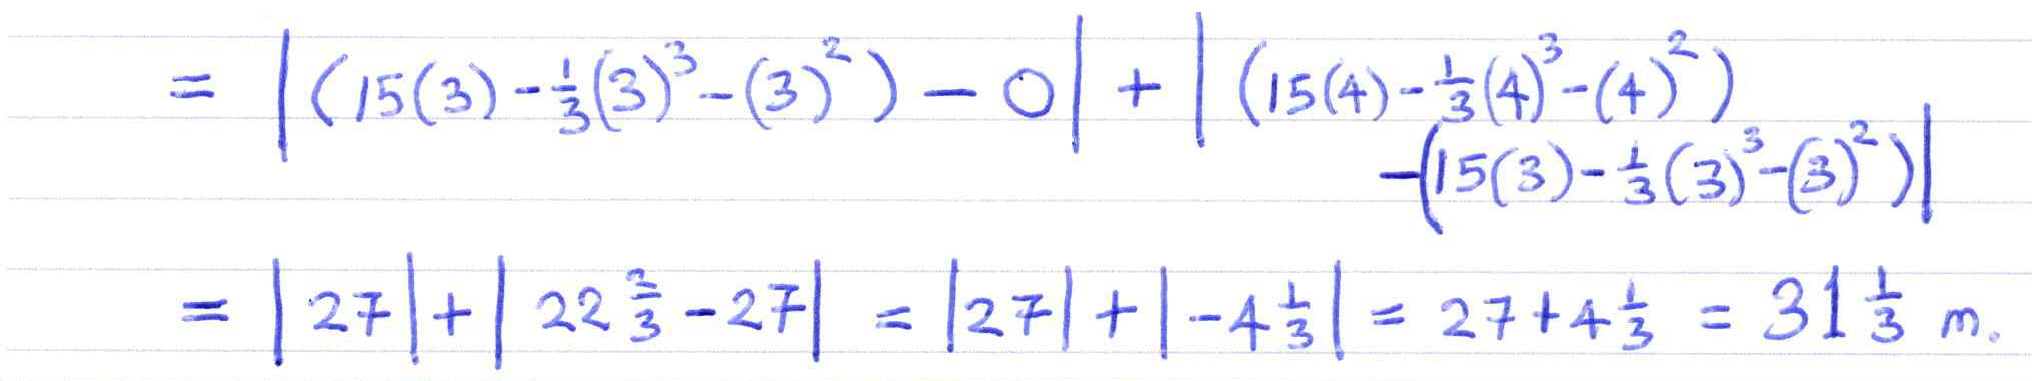 = |(15(3) - 1/3(3)³ - (3)²) - 0| + |(15(4) - 1/3(4)³ - (4)²)
-(15(3) - 1/3(3)³ - (3)²)|
= |27| + |22 2/3 - 27| = |27| + |-4 1/3| = 27 + 4 1/3 = 31 1/3 m.